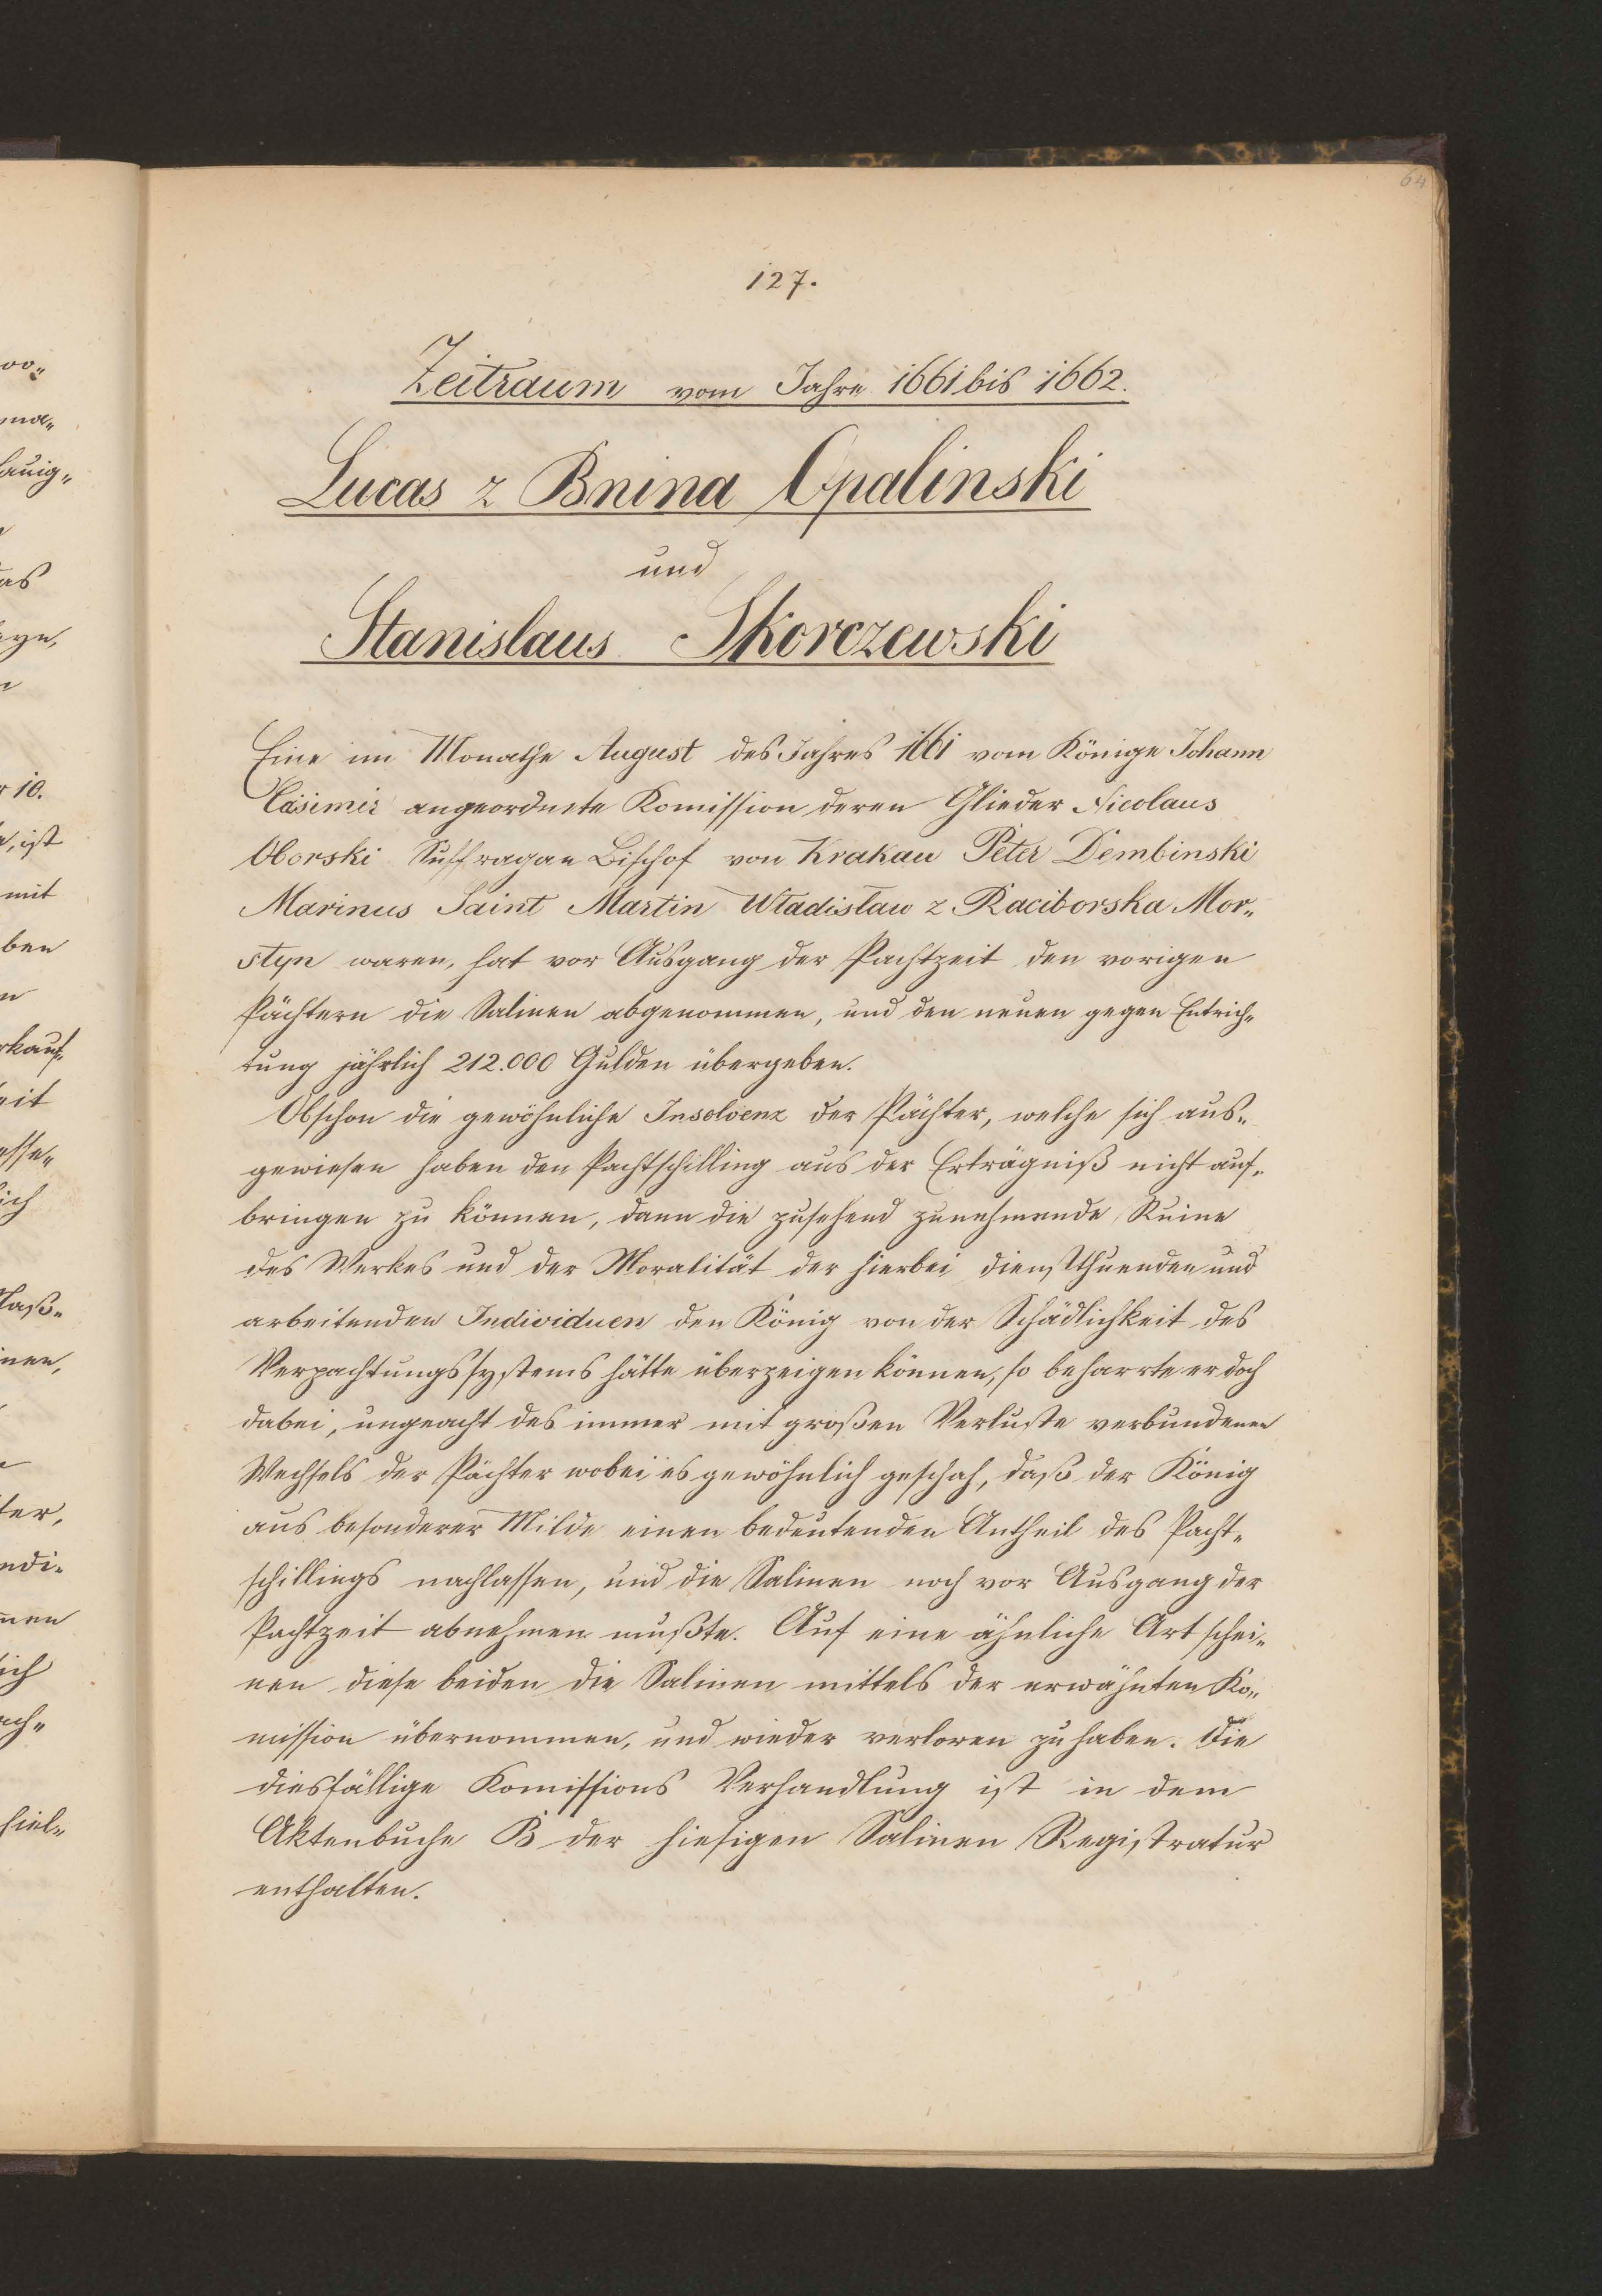 64
127.
Zeitraum vom Jahre 1661 bis 1662.
Lucas z Bnina Opalinski
und
Stanislaus Skorczewski
Eine im Monathe August des Jahres 1661 vom Könige Johann
Casimir angeordnete Komission deren Glieder Nicolaus
Oborski Suffragan Bischof von Krakau Peter Dembinski
Marinus Saint Martin Wladislaw z Raciborska Mor„
styn waren, hat vor Ausgang der Pachtzeit den vorigen
Pächtern die Salinen abgenommen, und den neuen gegen Entrich„
tung jährlich 212.000 Gulden übergeben.
Obschon die gewöhnliche Insolvenz der Pächter, welche sich aus„
gewiesen haben den Pachtschilling aus der Erträgniß nicht auf„
bringen zu können, dann die zusehend zunehmende Ruine
des Werkes und der Moralität der hierbei dienstthuenden und
arbeitenden Individuen den König von der Schädlichkeit des
Verpachtungssystems hätte überzeigen können, so beharrte er doch
dabei, ungeacht des immer mit großen Verluste verbundenen
Wechsels der Pächter wobei es gewöhnlich geschah, daß der König
aus besonderer Milde einen bedeutenden Antheil des Pacht„
schillings nachlassen, und die Salinen noch vor Ausgang der
Pachtzeit abnehmen mußte. Auf eine ähnliche Art schei„
nen diese beiden die Salinen mittels der erwähnten Ko„
mission übernommen, und wieder verloren zu haben. Die
diesfällige Komissions Verhandlung ist in dem
Aktenbuche B der hiesigen Salinen Registratur
enthalten.